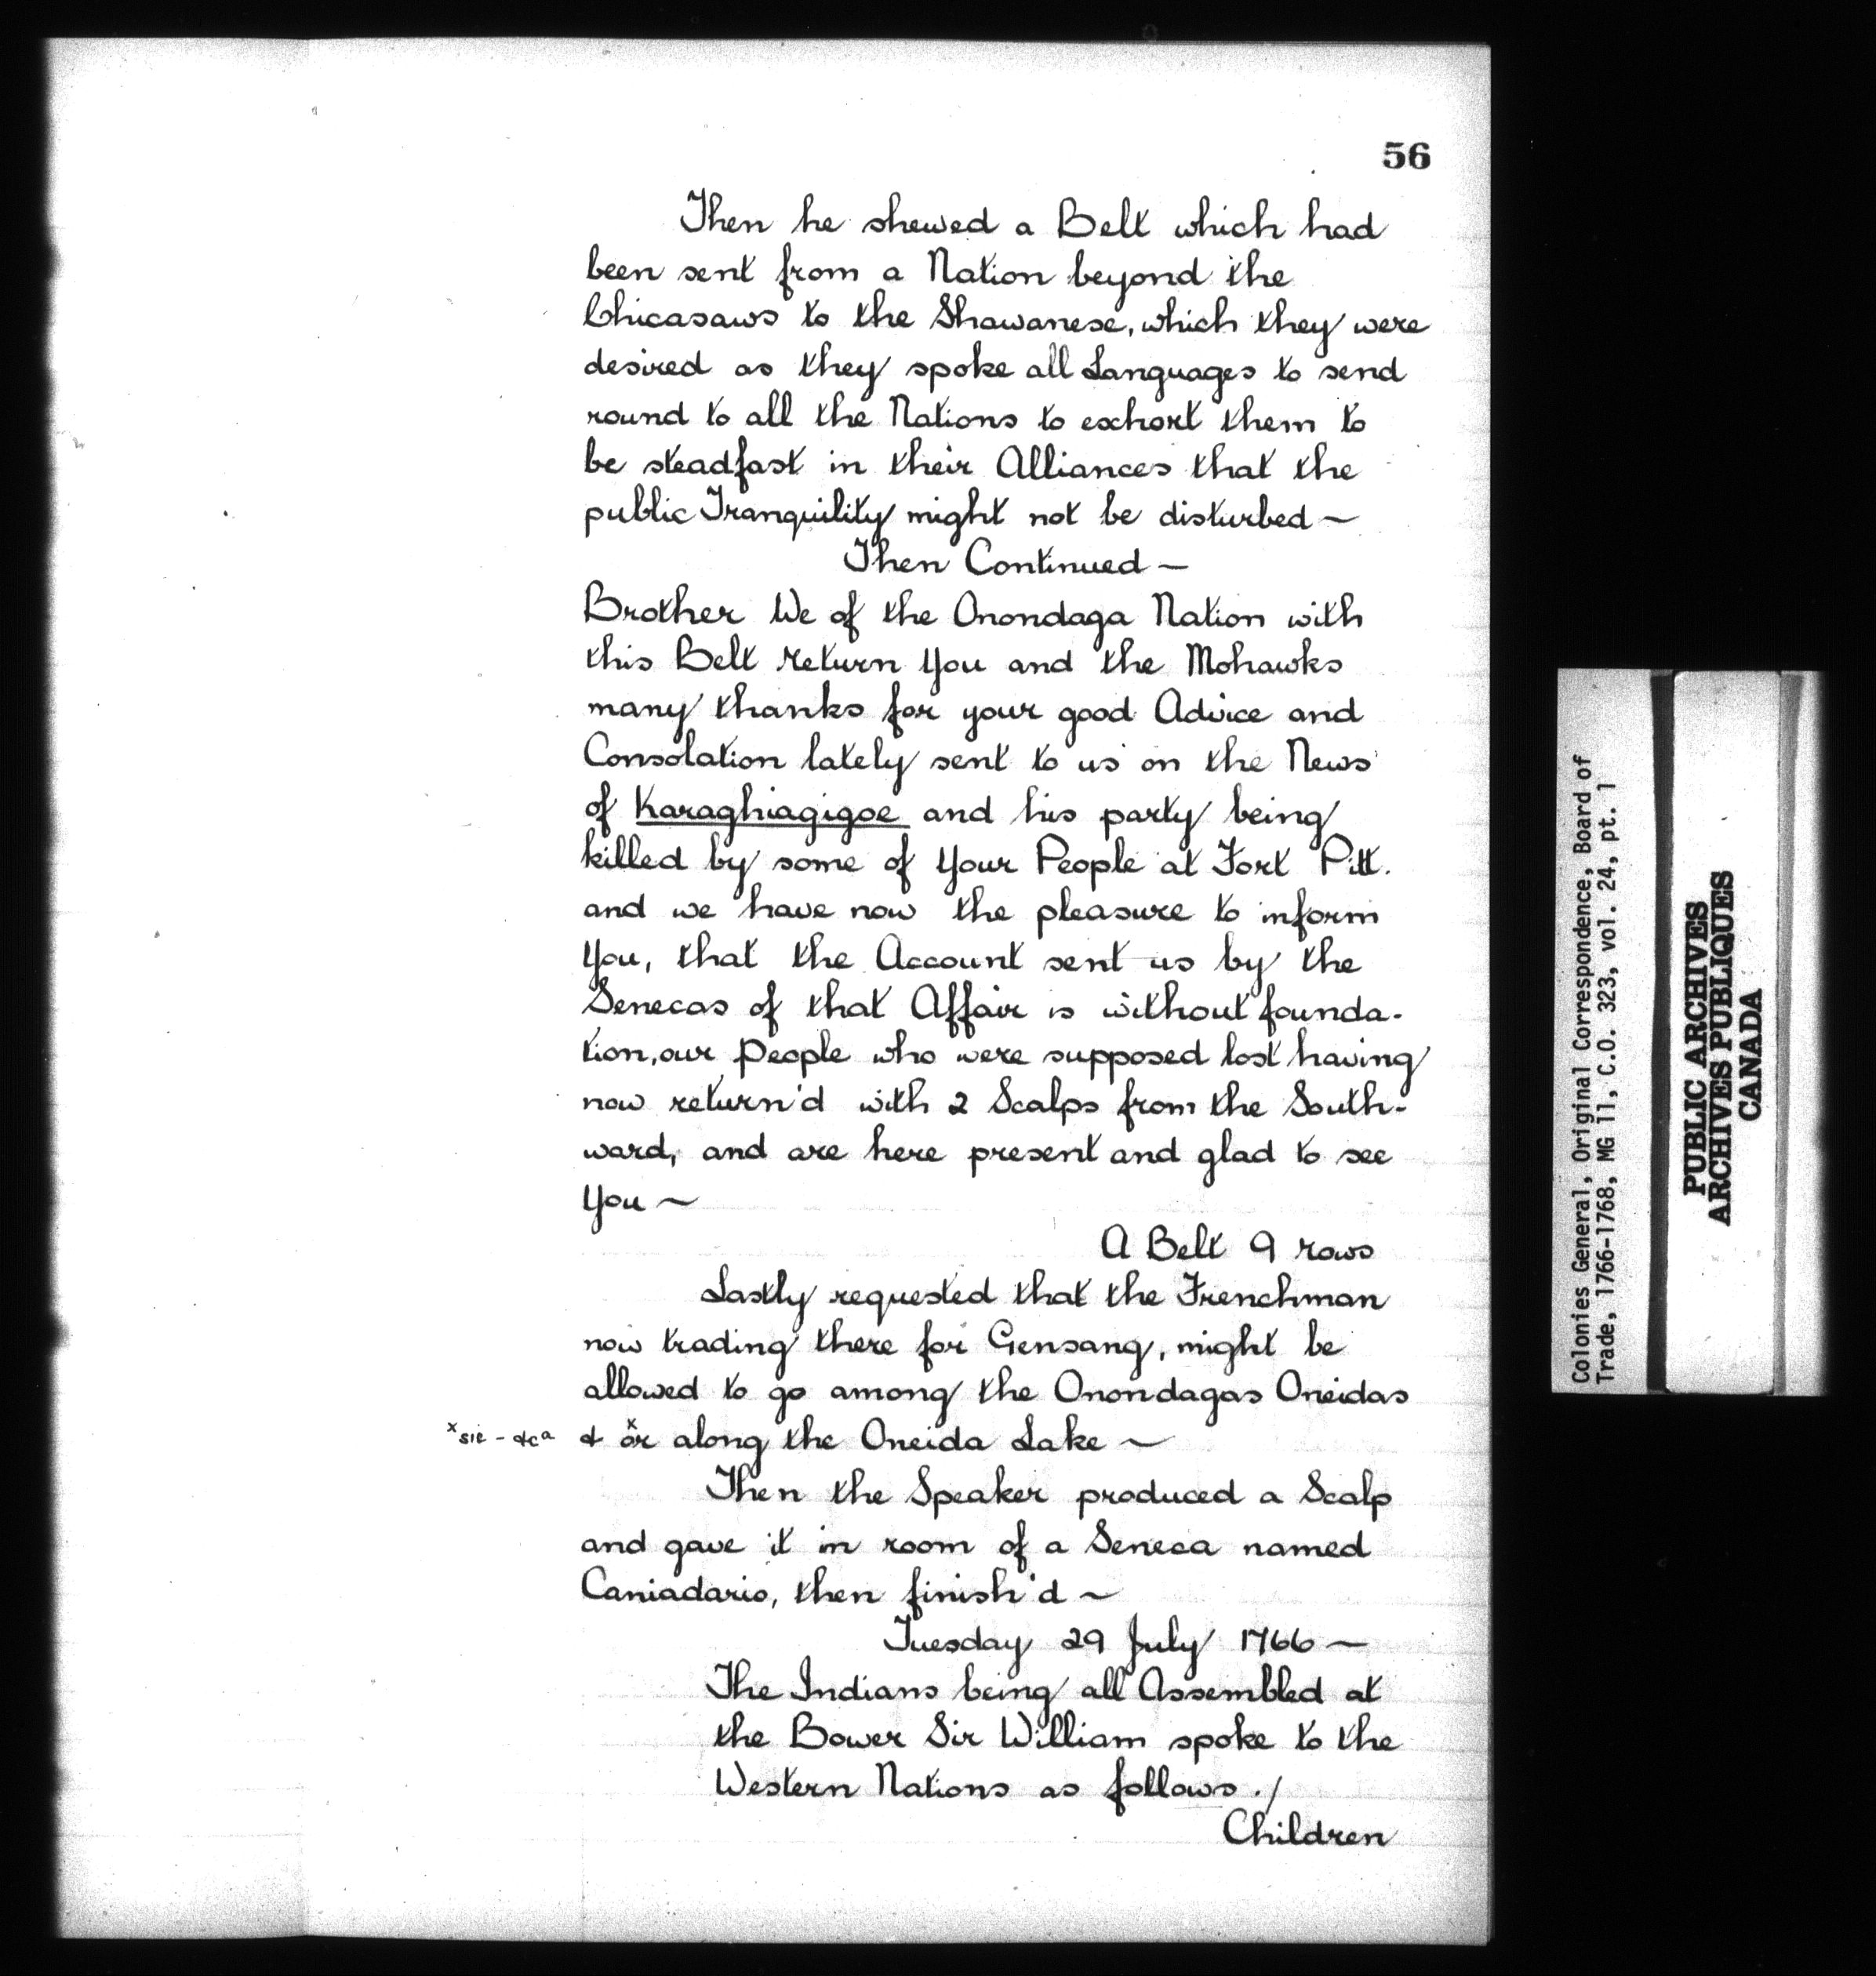 56
Then he shewed a Belt which had
been sent from a Nation beyond the
Chicasaws to the Shawanese, which they were
desired as they spoke all Languages to send
round to all the Nations to exhort them to
be steadfast in their Alliances that the
public Tranquility might not be disturbed ~
Then Continued —
Brother We of the Onondaga Nation with
this Belt return You and the Mohawks
many thanks for your good Advice and
Consolation lately sent to us on the News
of Karaghiagigoe and his party being
killed by some of Your People at Fort Pitt.
and we have now the pleasure to inform
You, that the Account sent us by the
Senecas of that Affair is without founda-
tion, our People who were supposed lost having
now return'd with 2 Scalps from the South-
ward, and are here present and glad to see
You ~
A Belt 9 rows
Lastly requested that the Frenchman
now trading there for Gensang, might be
allowed to go among the Onondagas Oneidas
x sic - &c a & or x along the Oneida Lake ~
Then the Speaker produced a Scalp
and gave it in room of a Seneca named
Caniadario, then finish'd ~
Tuesday 29 July 1766 —
The Indians being all Assembled at
the Bower Sir William spoke to the
Western Nations as follows ./
Children
Colonies General, Original Correspondence, Board of
Trade, 1766-1768, MG 11, C.O. 323, vol. 24, pt. 1
PUBLIC ARCHIVES
ARCHIVES PUBLIQUES
CANADA